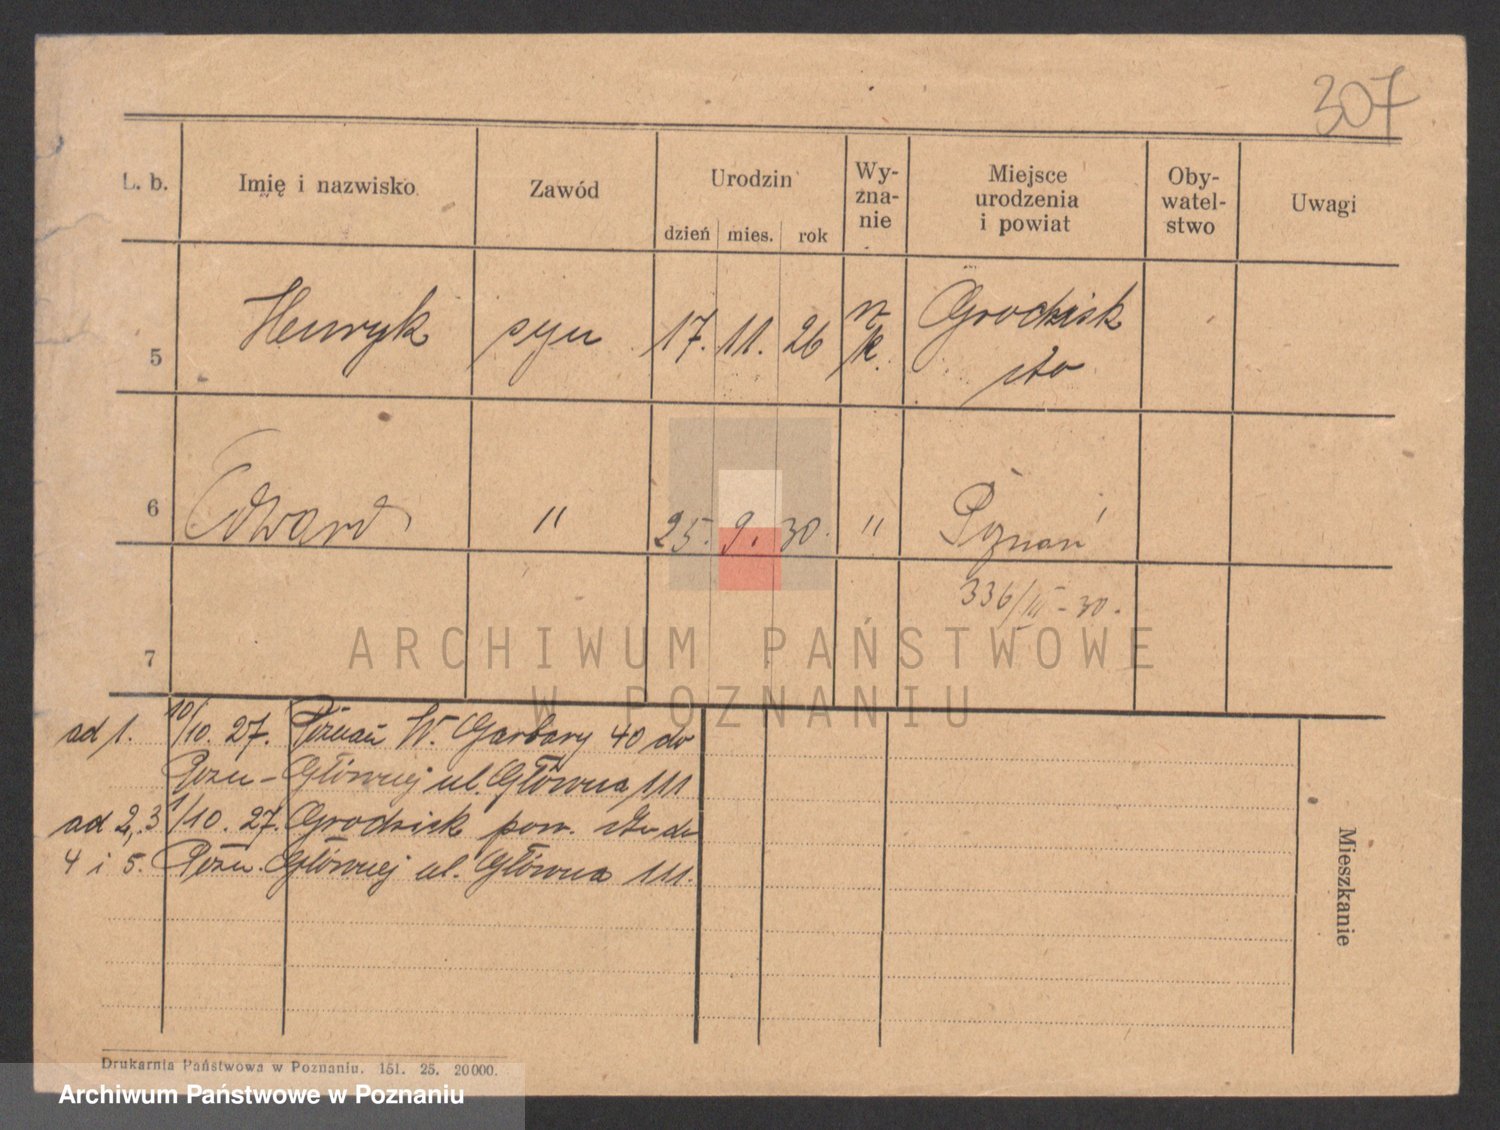 307
L. b. Imię i nazwisko Zawód Urodzin dzień mies. rok Wy-
zna-
nie Miejsce
urodzenia
i powiat Oby-
watel-
stwo Uwagi
5 Henryk syn 17. 11. 26 rz. k. Grodzisk
6 Edward " 25. 9. 30. " Poznań
336/III - 30.
7
ad 1. 10/10. 27. Poznań W. Garbary 40 do
Pozn - Głównej ul. Główna 111
ad 2, 3 1/10. 27. Grodzisk pow. do
4 i 5. Pozn. Głównej ul. Główna 111.
Mieszkanie
Drukarnia Państwowa w Poznaniu. 151. 25. 20000.
ARCHIWUM PAŃSTWOWE
W POZNANIU
Archiwum Państwowe w Poznaniu